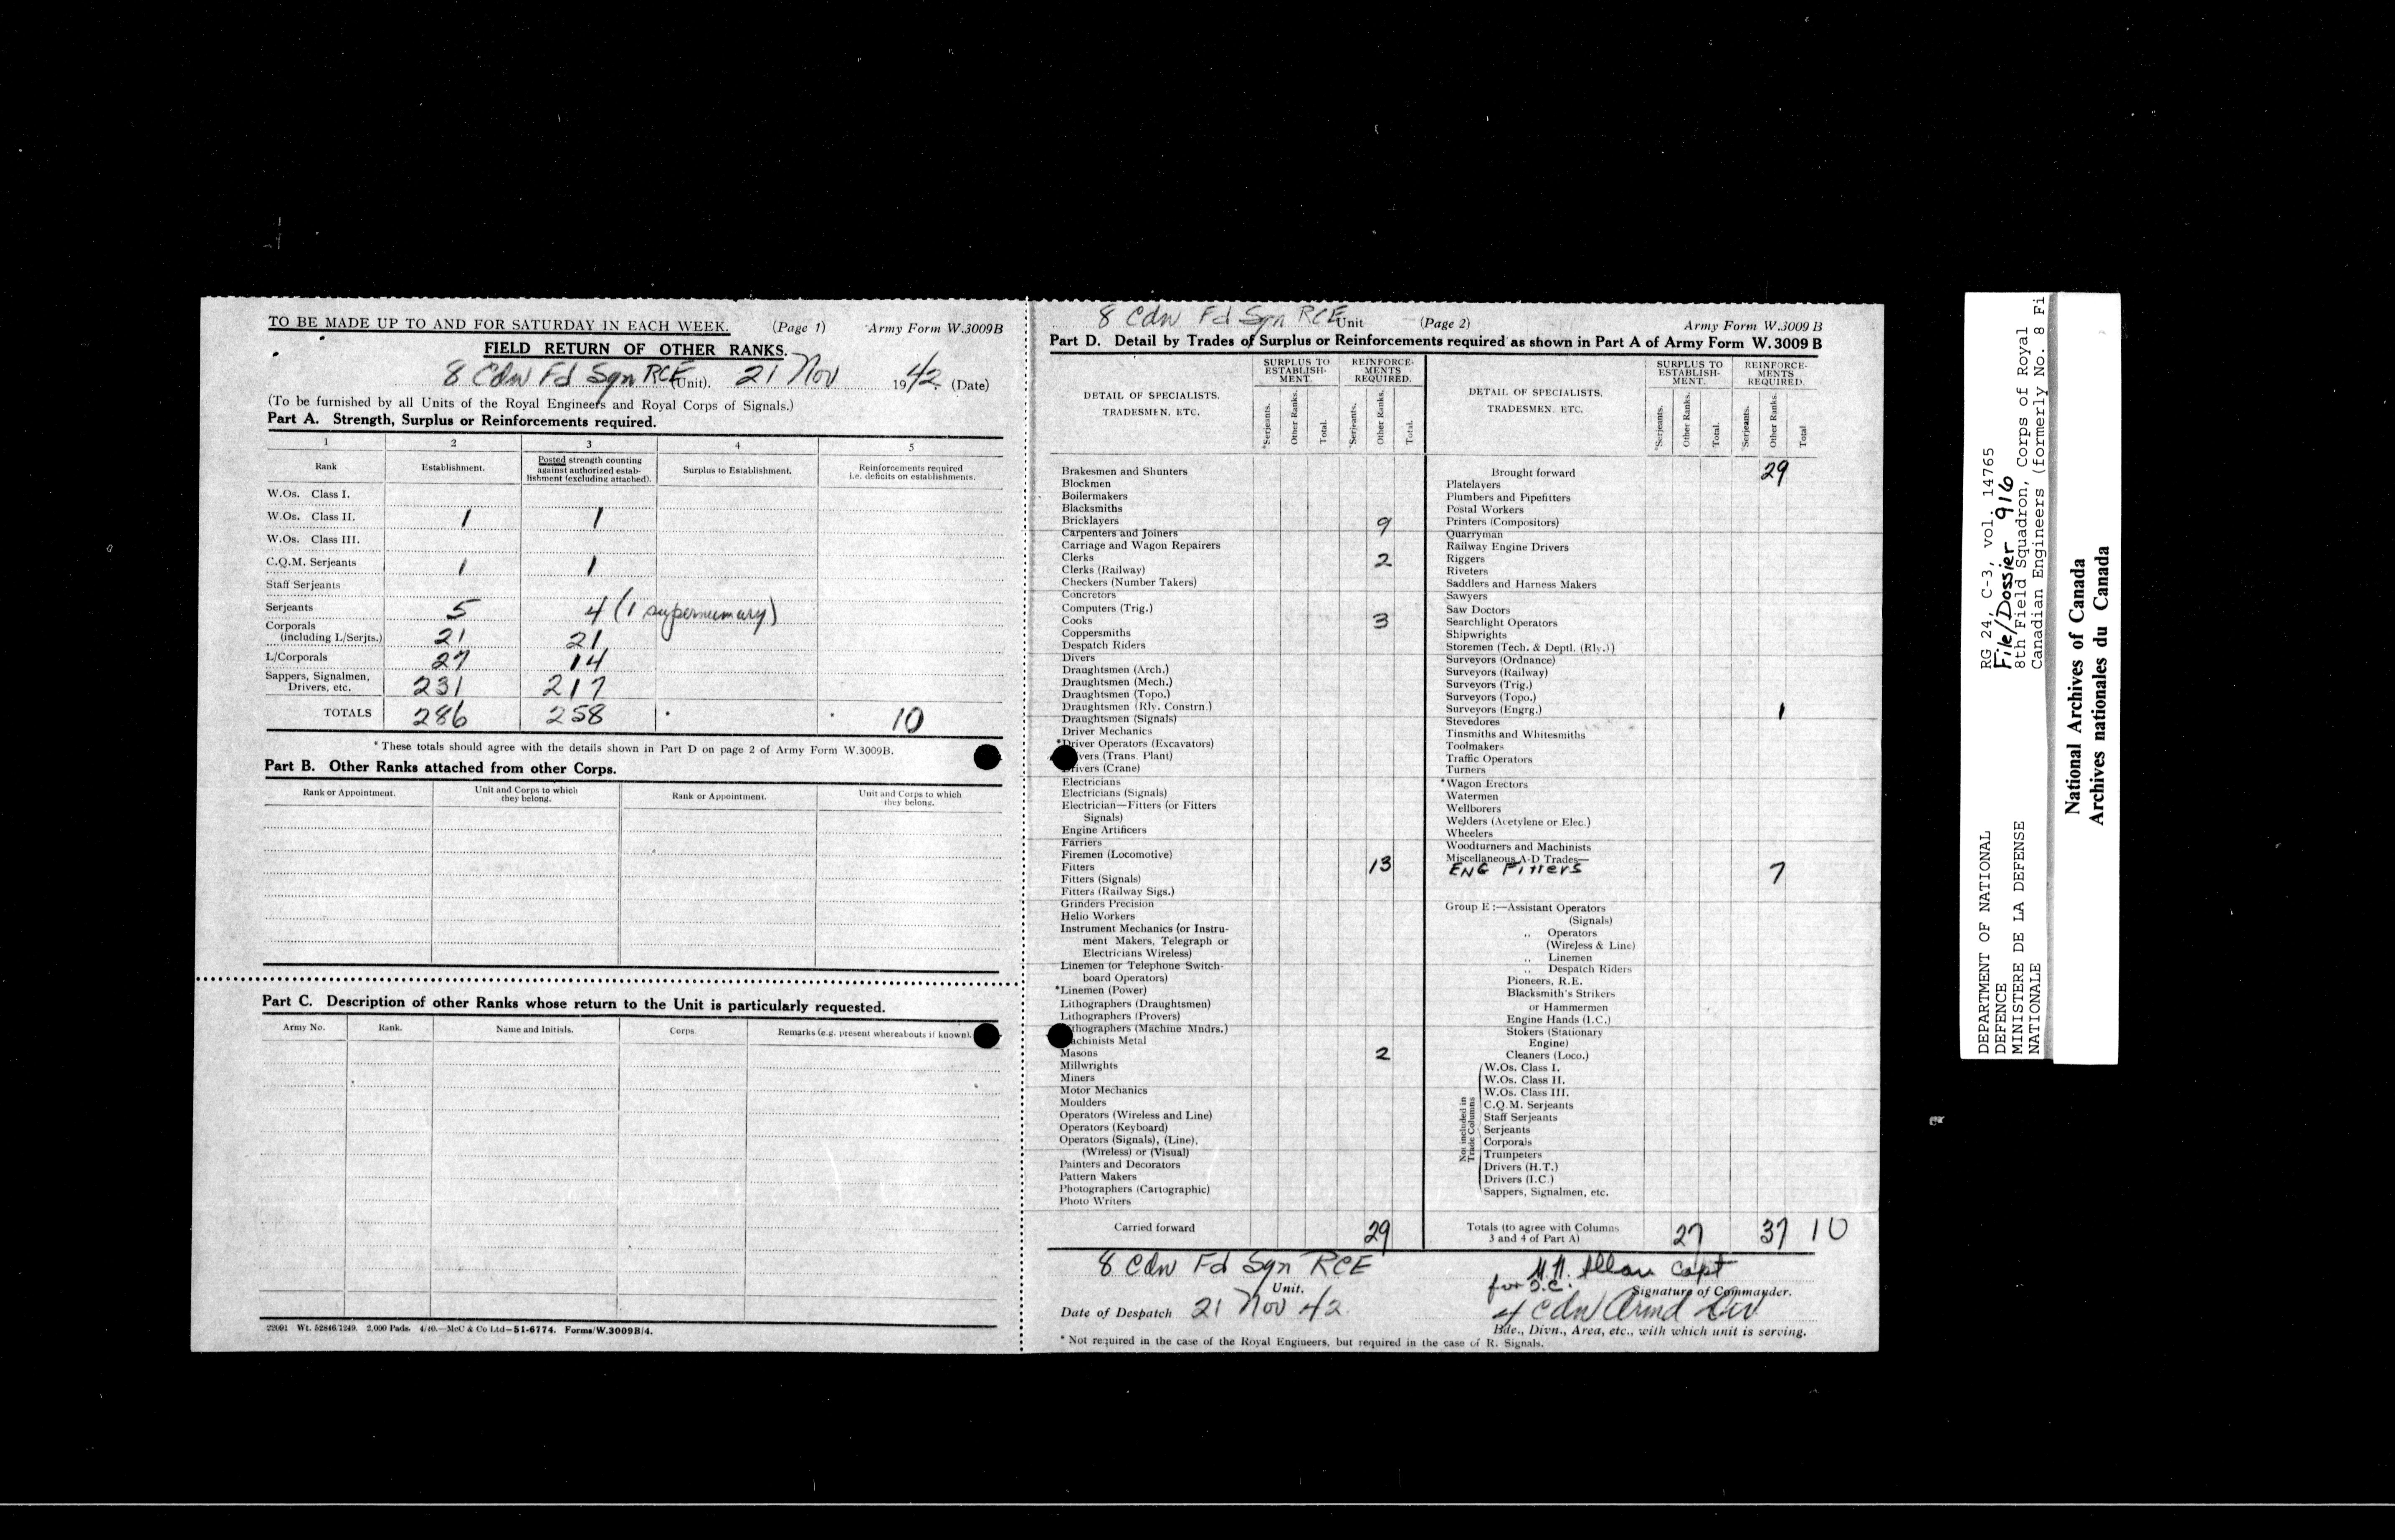 TO BE MADE UP TO AND FOR SATURDAY IN EACH WEEK. (Page 1) Army Form W.3009B
FIELD RETURN OF OTHER RANKS.
8 Cdn Fd Sqn RCE (Unit). 21 Nov 1942 (Date)
(To be furnished by all Units of the Royal Engineers and Royal Corps of Signals.)
Part A. Strength, Surplus or Reinforcements required.
1 2 3 4 5
Rank Establishment. Posted strength counting against authorized estab-lishment (excluding attached). Surplus to Establishment. Reinforcements required i.e. deficits on establishments.
W.Os. Class I.
W.Os. Class II. 1 1
W.Os. Class III.
C.Q.M. Serjeants 1 1
Staff Serjeants
Serjeants 5 4 (1 supernumary)
Corporals
(including L/Serjts.) 21 21
L/Corporals 27 14
Sappers, Signalmen,
Drivers, etc. 231 217
TOTALS 286 258 10
* These totals should agree with the details shown in Part D on page 2 of Army Form W.3009B.
Part B. Other Ranks attached from other Corps.
Rank or Appointment. Unit and Corps to which they belong. Rank or Appointment. Unit and Corps to which they belong.
Part C. Description of other Ranks whose return to the Unit is particularly requested.
Army No. Rank. Name and Initials. Corps. Remarks (e.g. present whereabouts if known).
22091 Wt. 52846/1249. 2,000 Pads. 4/40.—McC & Co Ltd—51-6774. Forms/W.3009B/4.
8 Cdn Fd Sqn RCE Unit (Page 2) Army Form W.3009 B
Part D. Detail by Trades of Surplus or Reinforcements required as shown in Part A of Army Form W. 3009 B
DETAIL OF SPECIALISTS, TRADESMEN, ETC.
SURPLUS TO ESTABLISH-MENT.
REINFORCE-MENTS REQUIRED.
*Serjeants. Other Ranks. Total. *Serjeants. Other Ranks. Total.
Brakesmen and Shunters
Blockmen
Boilermakers
Blacksmiths
Bricklayers 9
Carpenters and Joiners
Carriage and Wagon Repairers
Clerks 2
Clerks (Railway)
Checkers (Number Takers)
Concretors
Computers (Trig.)
Cooks 3
Coppersmiths
Despatch Riders
Divers
Draughtsmen (Arch.)
Draughtsmen (Mech.)
Draughtsmen (Topo.)
Draughtsmen (Rly. Constrn.)
Draughtsmen (Signals)
Driver Mechanics
*Driver Operators (Excavators)
vers (Trans. Plant)
Drivers (Crane)
Electricians
Electricians (Signals)
Electrician—Fitters (or Fitters
Signals)
Engine Artificers
Farriers
Firemen (Locomotive)
Fitters 13
Fitters (Signals)
Fitters (Railway Sigs.)
Grinders Precision
Helio Workers
Instrument Mechanics (or Instru-
ment Makers, Telegraph or
Electricians Wireless)
Linemen (or Telephone Switch-
board Operators)
*Linemen (Power)
Lithographers (Draughtsmen)
Lithographers (Provers)
thographers (Machine Mndrs.)
achinists Metal
Masons 2
Millwrights
Miners
Motor Mechanics
Moulders
Operators (Wireless and Line)
Operators (Keyboard)
Operators (Signals), (Line),
(Wireless) or (Visual)
Painters and Decorators
Pattern Makers
Photographers (Cartographic)
Photo Writers
Carried forward 29
DETAIL OF SPECIALISTS, TRADESMEN, ETC.
SURPLUS TO ESTABLISH-MENT.
REINFORCE-MENTS REQUIRED.
*Serjeants. Other Ranks. Total. *Serjeants. Other Ranks. Total
Brought forward 29
Platelayers
Plumbers and Pipefitters
Postal Workers
Printers (Compositors)
Quarryman
Railway Engine Drivers
Riggers
Riveters
Saddlers and Harness Makers
Sawyers
Saw Doctors
Searchlight Operators
Shipwrights
Storemen (Tech. & Deptl. (Rly.))
Surveyors (Ordnance)
Surveyors (Railway)
Surveyors (Trig.)
Surveyors (Topo.)
Surveyors (Engrg.) 1
Stevedores
Tinsmiths and Whitesmiths
Toolmakers
Traffic Operators
Turners
*Wagon Erectors
Watermen
Wellborers
Welders (Acetylene or Elec.)
Wheelers
Woodturners and Machinists
Miscellaneous A-D Trades—
ENG Fitters 7
Group E :—Assistant Operators
(Signals)
,, Operators
(Wireless & Line)
,, Linemen
,, Despatch Riders
Pioneers, R.E.
Blacksmith's Strikers
or Hammermen
Engine Hands (I.C.)
Stokers (Stationary
Engine)
Cleaners (Loco.)
Not included in Trade Columns
W.Os. Class I.
W.Os. Class II.
W.Os. Class III.
C.Q.M. Serjeants
Staff Serjeants
Serjeants
Corporals
Trumpeters
Drivers (H.T.)
Drivers (I.C.)
Sappers, Signalmen, etc.
Totals (to agree with Columns
3 and 4 of Part A) 27 37 10
8 Cdn Fd Sqn RCE
Unit.
Allan Capt
for O.C. Signature of Commander.
Date of Despatch 21 Nov 42
4 Cdn Armd Div
Bde., Divn., Area, etc., with which unit is serving.
* Not required in the case of the Royal Engineers, but required in the case of R. Signals.
RG 24, C-3, vol. 14765
File/Dossier 916
8th Field Squadron, Corps of Royal
Canadian Engineers (formerly No. 8 Fi
DEPARTMENT OF NATIONAL
DEFENCE
MINISTERE DE LA DEFENSE
NATIONALE
National Archives of Canada
Archives nationales du Canada